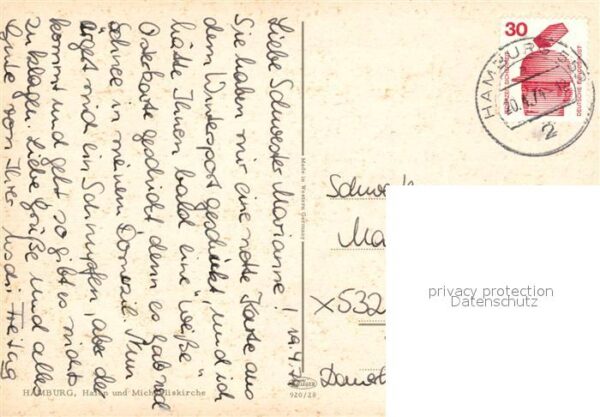 Liebe Schwester Marianne! 19.4.74
Sie haben mir eine nette Karte aus
dem Wintersport geschickt, und ich
hätte Ihnen bald eine "weiße"
Osterkarte geschickt denn es gab viel
Schnee in meinem Domizil. Nun
ärgert mich ein Schnupfen, aber der
kommt und geht so gibt es nichts
zu klagen. Liebe Grüße und alles
Gute von Ihrer Freitag
HAMBURG, Hafen und Michaeliskirche
Made in Western Germany
920/28
30
DEUTSCHE BUNDESPOST
HAMBURG
20.4.74
2
Schweste
Ma
X532
privacy protection
Datenschutz